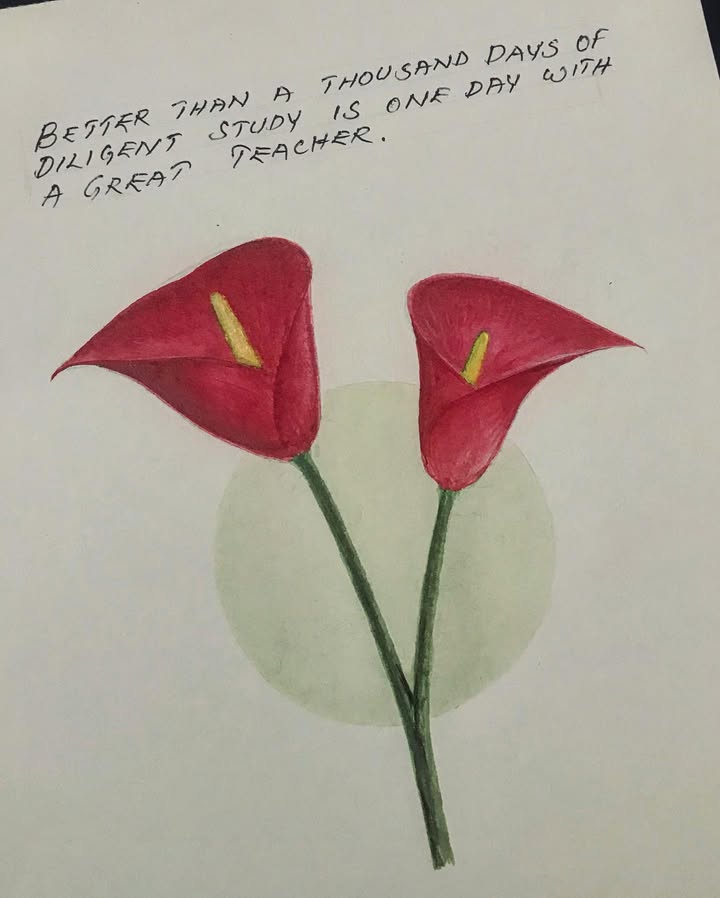 BETTER THAN A THOUSAND DAYS OF
DILIGENT STUDY IS ONE DAY WITH
A GREAT TEACHER.